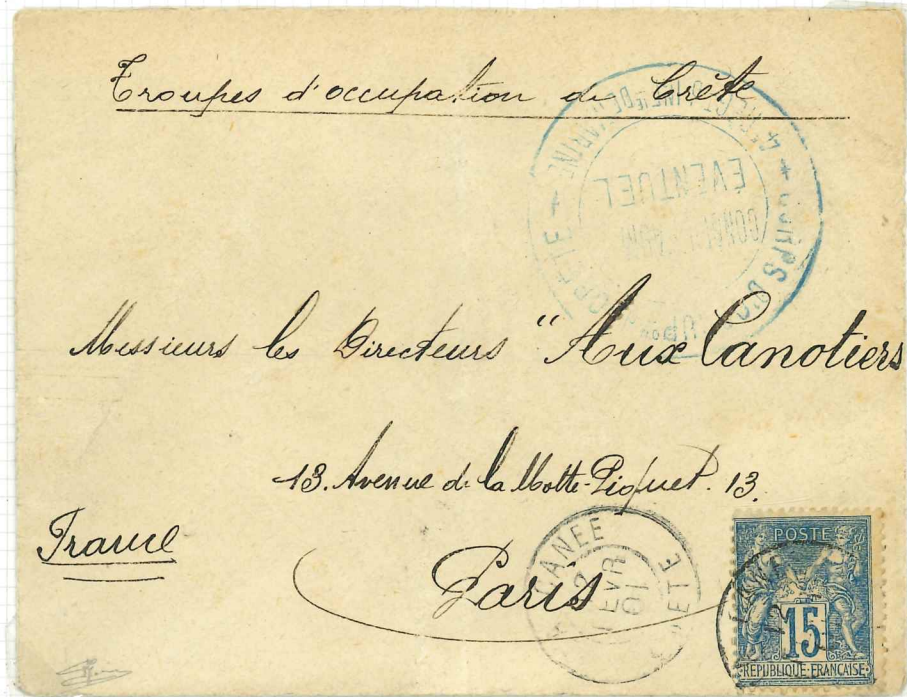 Troupes d'occupation de Crète
4e RÉGT D'INFIE DE MARINE + CORPS D'OCCUPon CRÈTE +
ÉVENTUEL
Messieurs les Directeurs "Aux Canotiers
13. Avenue de la Motte-Piquet. 13.
France
Paris
CANEE
12
FEVR
01
CRETE
POSTE
15
REPUBLIQUE FRANÇAISE